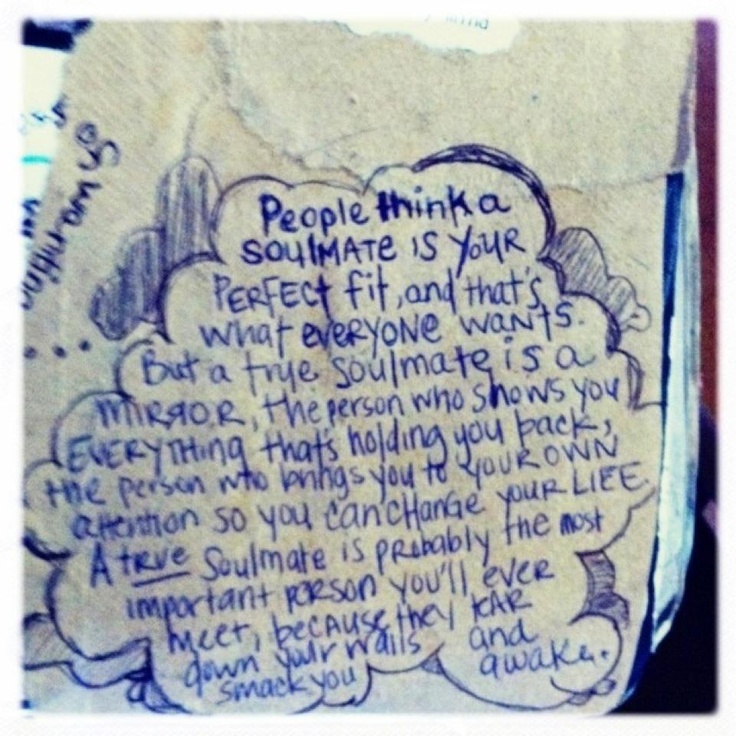 People think a
SOULMATE IS YOUR
PERFECT fit, and that's
what everyone wants.
But a true soulmate is a
MIRROR, the person who shows you
EVERYTHING that's holding you back,
the person who brings you to YOUR OWN
attention so you can CHANGE YOUR LIFE
A true soulmate is probably the most
important person you'll ever
meet, because they tEAR
down your walls and
smack you awake.